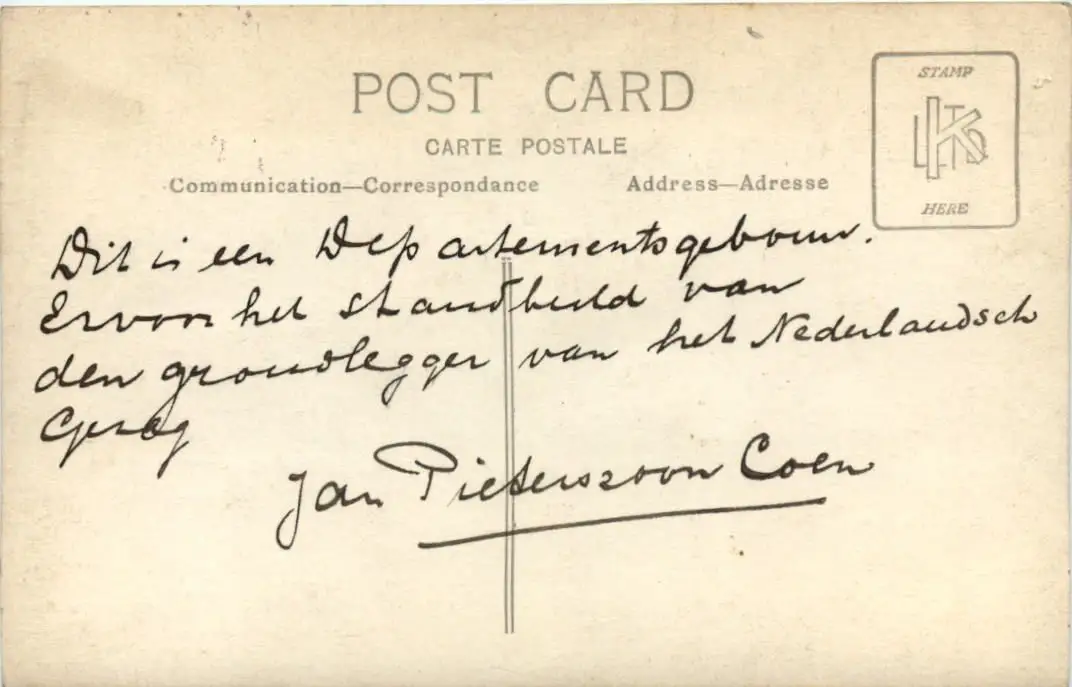 POST CARD
CARTE POSTALE
Communication—Correspondance
Address—Adresse
STAMP
KLTD
HERE
Dit is een Departementsgebouw.
Ervoor het standbeeld van
den grondlegger van het Nederlandsch
Gezag
Jan Pieterszoon Coen